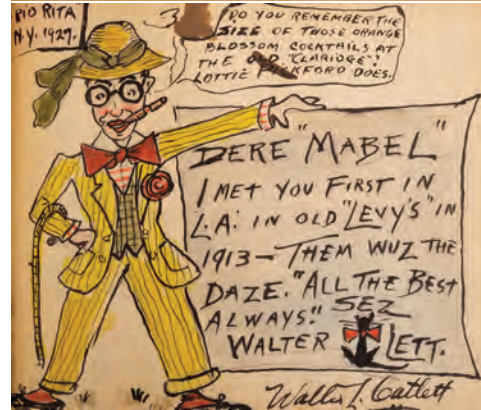 "RIO RITA"
N.Y. 1927.
DO YOU REMEMBER THE
SIZE OF THOSE ORANGE
BLOSSOM COCKTAILS AT
THE OLD "CLARIDGE"?
LOTTIE PICKFORD DOES.
DERE "MABEL"
I MET YOU FIRST IN
L.A. IN OLD "LEVY'S" IN
1913 - THEM WUZ THE
DAZE. "ALL THE BEST
ALWAYS." SEZ
WALTER LETT.
Walter L. Catlett